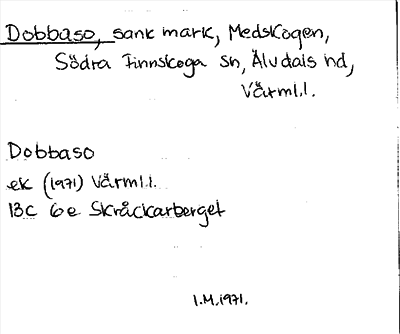 Dobbaso, sank mark, Medskogen,
Södra Finnskoga sn, Älvdals hd,
Värml.l.
Dobbaso
ek (1971) Värml.l.
13c 6e Skråckarberget
I.M.1971.